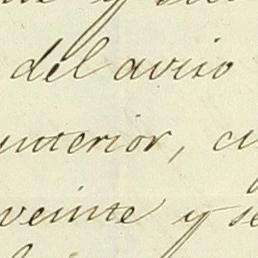 y
del aviso
interior, c
veinte y se